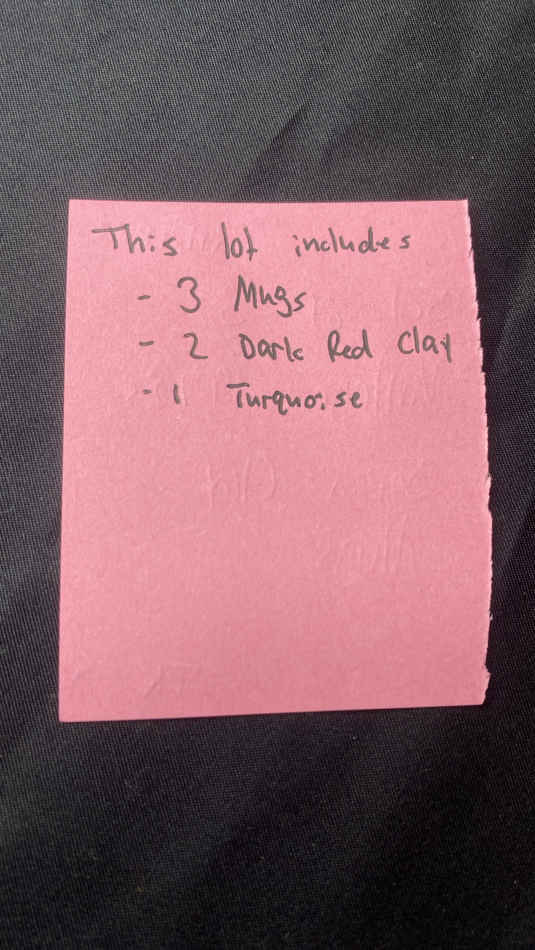 This lot includes
- 3 Mugs
- 2 Dark Red Clay
- 1 Turquoise